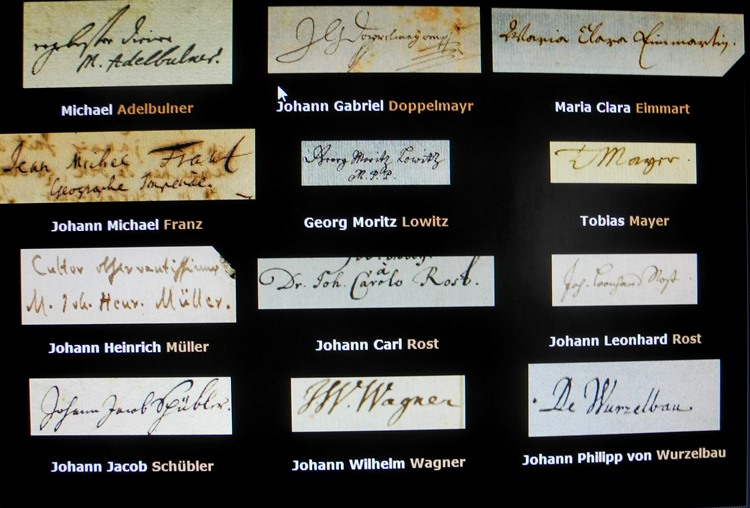 M. Adelbulner.
Michael Adelbulner
Johann Gabriel Doppelmayr
Maria Clara Eimmartin.
Maria Clara Eimmart
Jean Michel Franz
Geographe Imperial.
Johann Michael Franz
Georg Moritz Lowitz
M. P. P.
Georg Moritz Lowitz
T Mayer.
Tobias Mayer
Cultor observantissimus
M. Joh. Henr. Müller.
Johann Heinrich Müller
à
Dr. Joh. Carolo Rost.
Johann Carl Rost
Joh. Leonhard Rost
Johann Leonhard Rost
Johann Jacob Schübler.
Johann Jacob Schübler
JW. Wagner
Johann Wilhelm Wagner
De Wurzelbau.
Johann Philipp von Wurzelbau